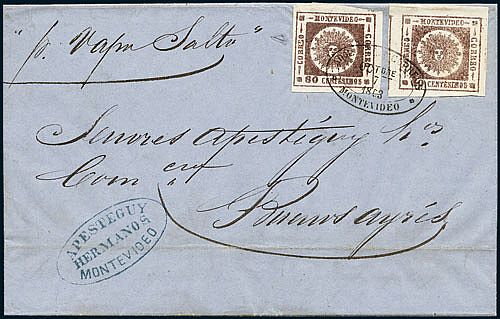 "p. Vapor Salto"
MONTEVIDEO
CORREO
CORREO
60 CENTESIMOS
MONTEVIDEO
CORREO
CORREO
CENTESIMOS
OCTUBE
1863
MONTEVIDEO
Senores Apesteguy h.s
Com
Buenos ayres
APESTEGUY
HERMANOS
MONTEVIDEO